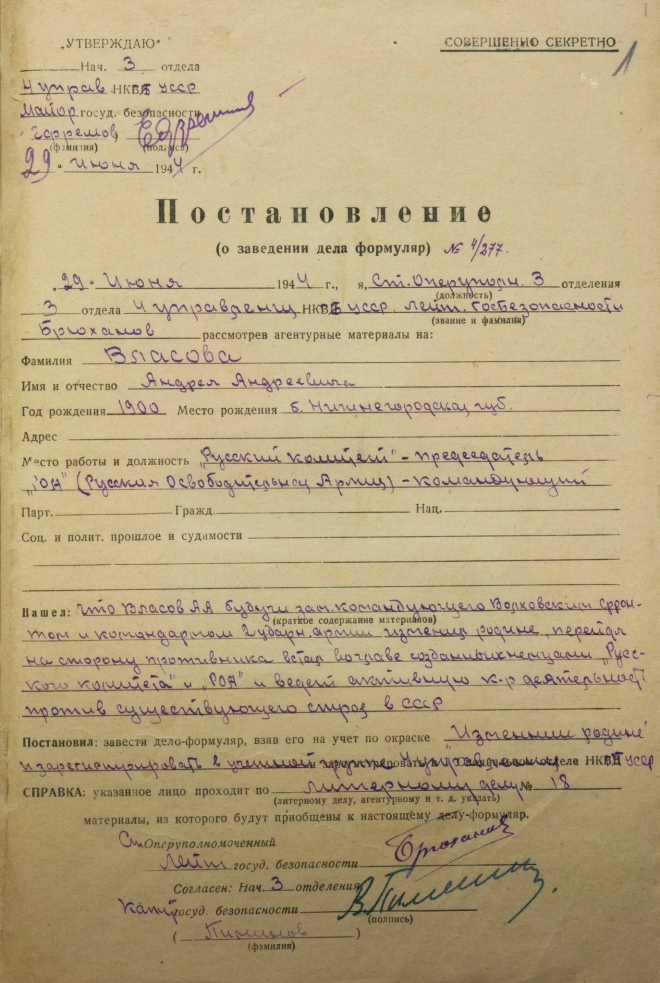 „УТВЕРЖДАЮ"
СОВЕРШЕННО СЕКРЕТНО
1
Нач. 3 отдела
4 управ. НКГБ УССР
Майор госуд. безопасности
Ефремов
(фамилия) (подпись)
„29" Июня 1944 г.
Постановление
(о заведении дела формуляр) № 4/277.
„29" Июня 1944 г., я, Ст. Оперуполн. 3 отделения
(должность)
3 отдела 4 управлениц НКГБ УССР Лейт. Госбезопасности
(звание и фамилия)
Брюханов рассмотрев агентурные материалы на:
Фамилия Власова
Имя и отчество Андрея Андреевича
Год рождения 1900 Место рождения б. Нижнегородская губ.
Адрес
Место работы и должность „Русский комитет" – председатель
„РОА" (Русская Освободительная Армия) – командующий
Парт. Гражд Нац.
Соц. и полит. прошлое и судимости
Нашел: что Власов АА будучи зам. командующего Волховским фрон-
(краткое содержание материалов)
том и командармом 2 ударн. армии изменил родине, перейдя
на сторону противника встал во главе созданных немцами „Русс-
кого комитета" и „РОА" и ведет активную к-р деятельность
против существующего строя в СССР
Постановил: завести дело-формуляр, взяв его на учет по окраске „Изменник родине"
и зарегистрировать в учетной группе 4 управления отделе НКГБ УССР
СПРАВКА: указанное лицо проходит по литерному делу № 18
(литерному делу, агентурному и т. д. указать)
материалы, из которого будут приобщены к настоящему делу-формуляр.
Ст. Оперуполномоченный
Лейт. госуд. безопасности Брюханов
Согласен: Нач. 3 отделения
Капит. госуд. безопасности
(подпись)
(Пименов)
(фамилия)